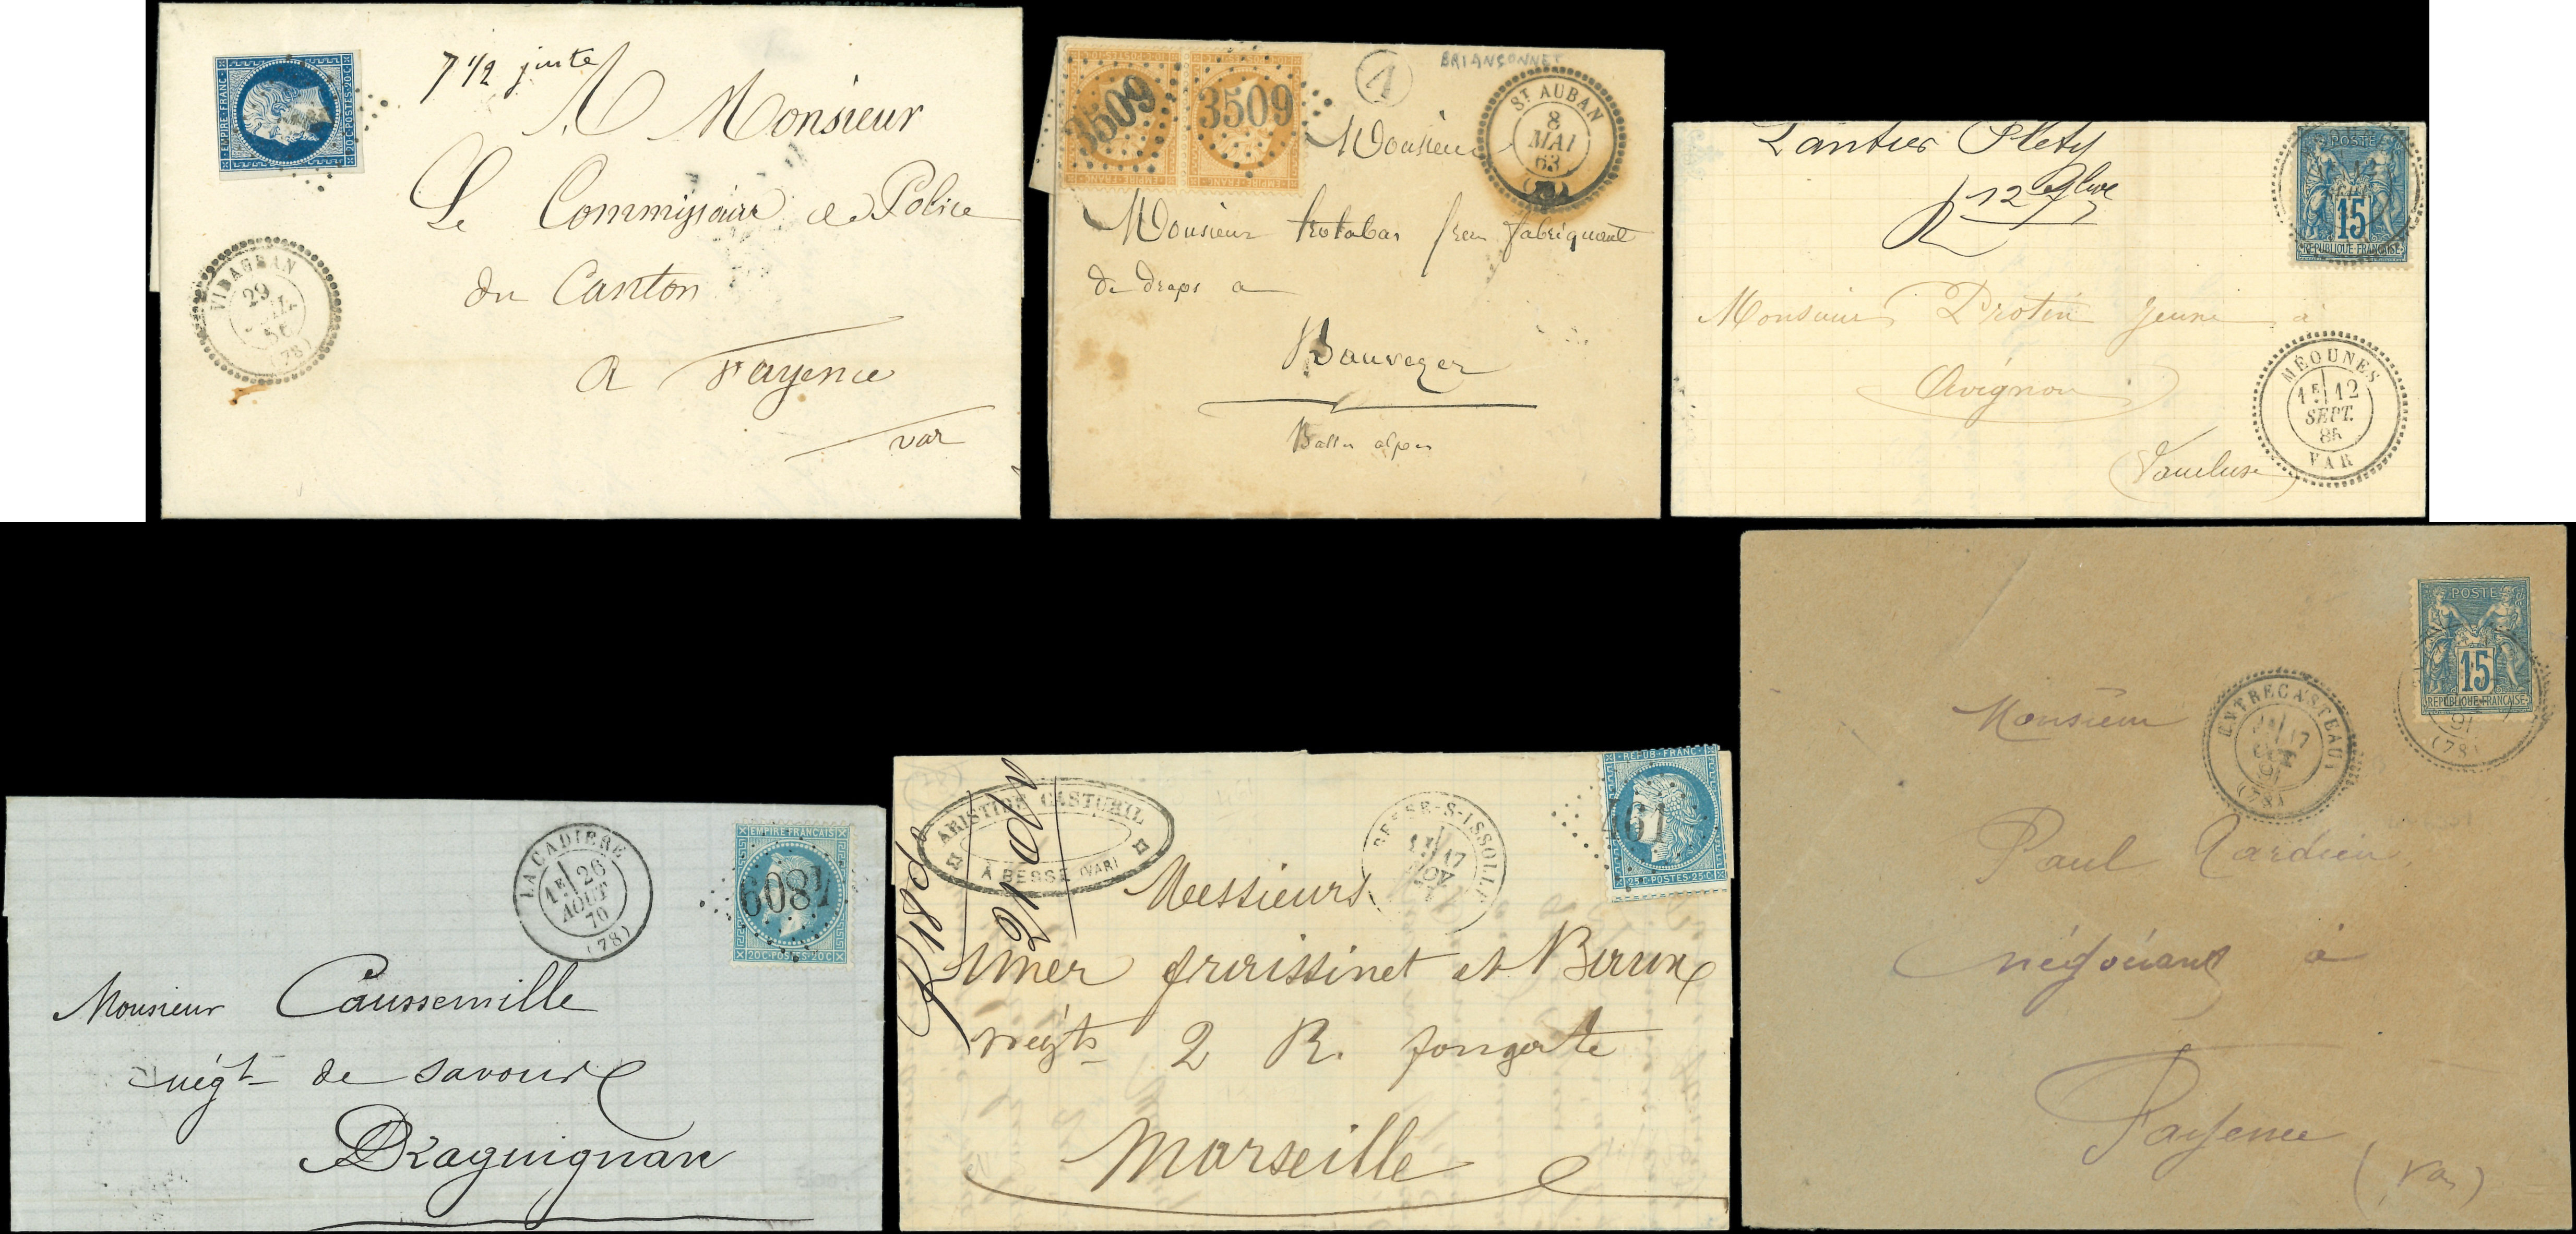 EMPIRE FRANC.
20 C. POSTES 20 C.
7 1/2 juste
A Monsieur
Le Commissaire de Police
du Canton
a Fayence
var
VIDAUBAN
29
56
(78)
3509
3509
EMPIRE FRANC.
EMPIRE FRANC.
1
BRIANÇONNET
ST AUBAN
8
MAI
63
Monsieur
Monsieur trotabas frere fabriquant
de draps a
Bauvezer
Basses alpes
POSTE
15
REPUBLIQUE FRANCAISE
12
Monsieur Protin Jeune à
Avignon
(Vaucluse)
MÉOUNES
1E 12
SEPT.
85
VAR
LA CADIERE
1E 26
AOUT
70
(78)
EMPIRE FRANÇAIS
6081
20 C. POSTES 20 C.
Monsieur Caussemille
négt de savons
Draguignan
ARISTIDE CASTUEIL
À BESSE (VAR)
R 18 d
21 d
BESSE-S-ISSOLE
17
NOV
REPUB. FRANC.
461
25 C. POSTES 25 C.
Messieurs
Imer fraissinet et Baux
négts 2 R. fongate
Marseille
POSTE
15
REPUBLIQUE FRANCAISE
91
(78)
ENTRECASTEAUX
17
91
(78)
Monsieur
Paul Tardieu
négociant à
Fayence
(Var)